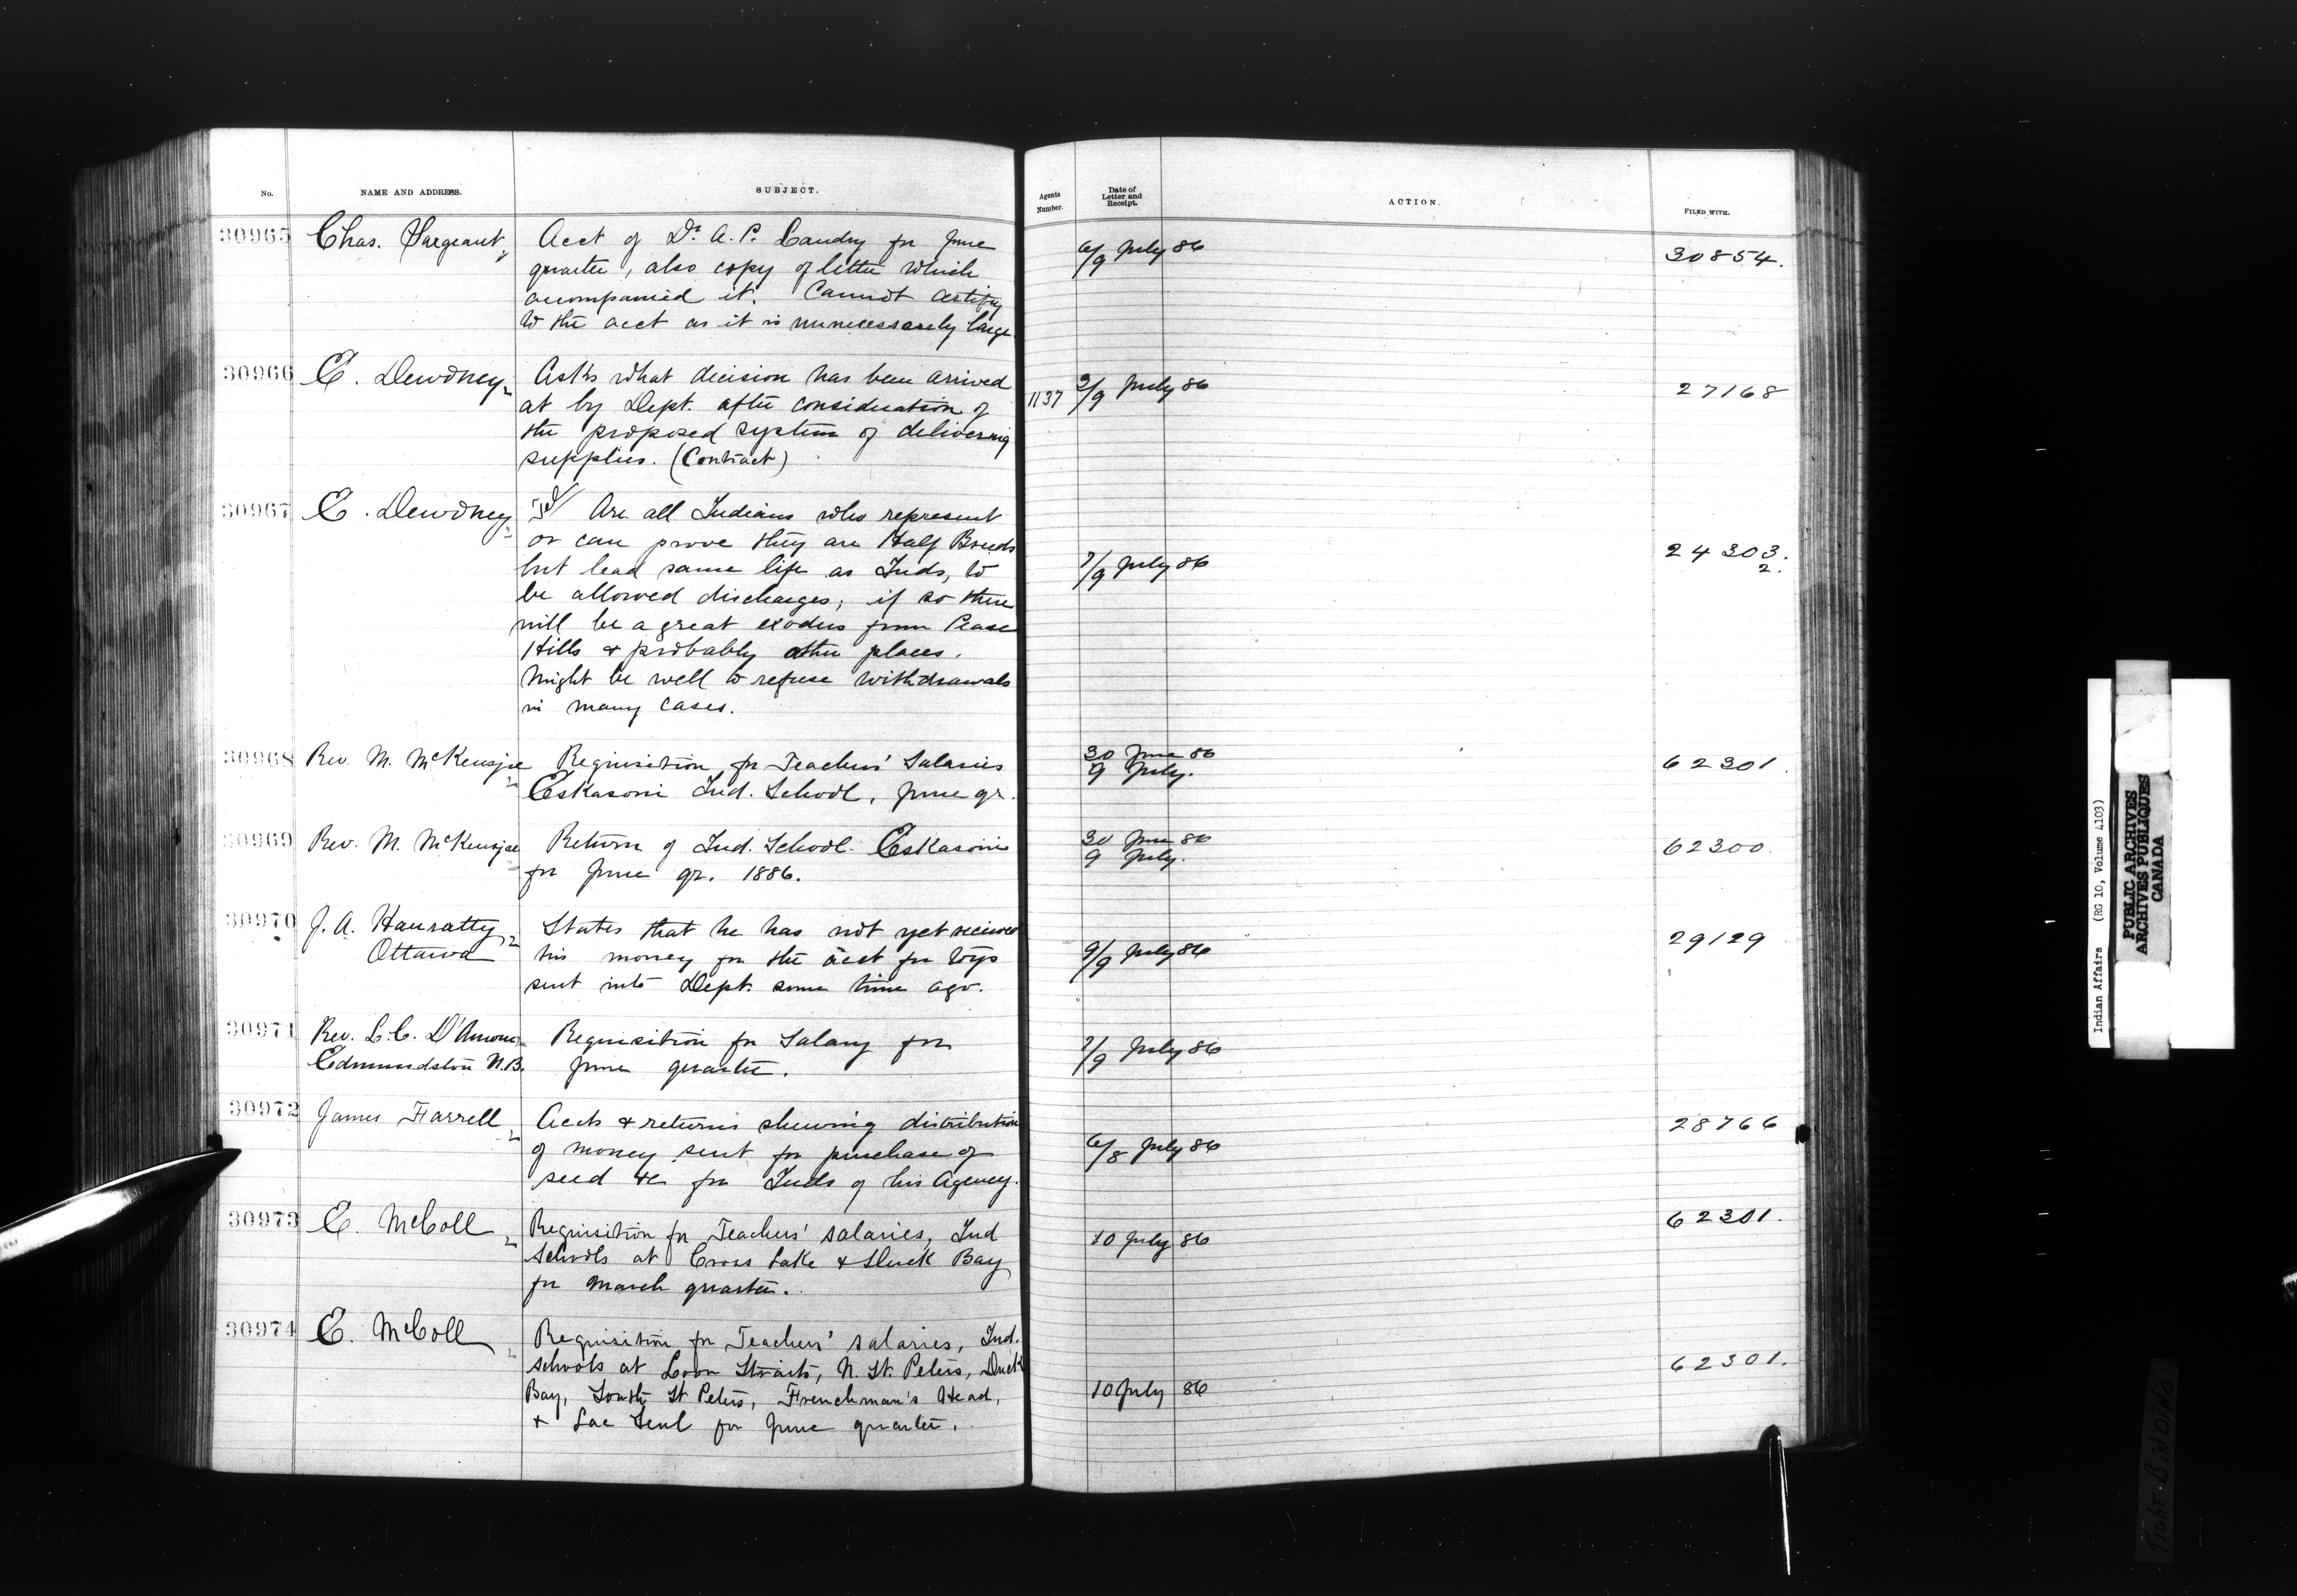 No. NAME AND ADDRESS. SUBJECT. Agents Number. Date of Letter and Receipt. ACTION. FILED WITH.
30965 Chas. Sargeant Acct of Dr. A. P. Landry for June 6/9 July 86 30854.
quarter, also copy of letter which
accompanied it. Cannot certify
to the acct as it is unnecessarely large
30966 E. Dewdney Asks what decision has been arrived 1137 3/9 July 86 27168
at by Dept. after consideration of
the proposed system of delivering
supplies. (Contract)
30967 E. Dewdney Are all Indians who represent
or can prove they are Half Breeds 7/9 July 86 24303. 2.
but lead same life as Inds, to
be allowed discharges, if so there
will be a great exodus from Pease
Hills & probably other places.
Might be well to refuse withdrawals
in many cases.
30968 Rev. M. McKenzie Requisition for Teachers' Salaries 30 June 86 62301
Eskasoni Ind. School, June qr. 9 July.
30969 Rev. M. McKenzie Return of Ind. School Eskasoni 30 June 86 62300.
for June qr. 1886. 9 July.
30970 J. A. Hanratty States that he has not yet received 29129
Ottawa his money for the acct for toys 9/9 July 86
sent into Dept. some time ago.
30971 Rev. L. C. D'Amour Requisition for Salary for 7/9 July 86
Edmundston N.B. June quarter.
30972 James Farrell Accts & returns shewing distribution 28766
of money sent for purchase of 6/8 July 86
seed &c for Inds of his Agency.
30973 E. McColl Requisition for Teachers' salaries, Ind 62301.
Schools at Cross Lake & Duck Bay 10 July 86
for March quarter.
30974 E. McColl Requisition for Teachers' salaries, Ind.
schools at Loon Straits, N. St. Peters, Duck 62301.
Bay, South St Peters, Frenchman's Head, 10 July 86
& Lac Seul for June quarter.
Indian Affairs (RG 10, Volume 4103)
PUBLIC ARCHIVES
ARCHIVES PUBLIQUES
CANADA